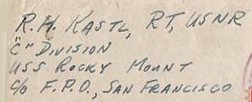 R.H. KASTL, RT, USNR
"C" DIVISION
USS ROCKY MOUNT
C/O F.P.O., SAN FRANCISCO